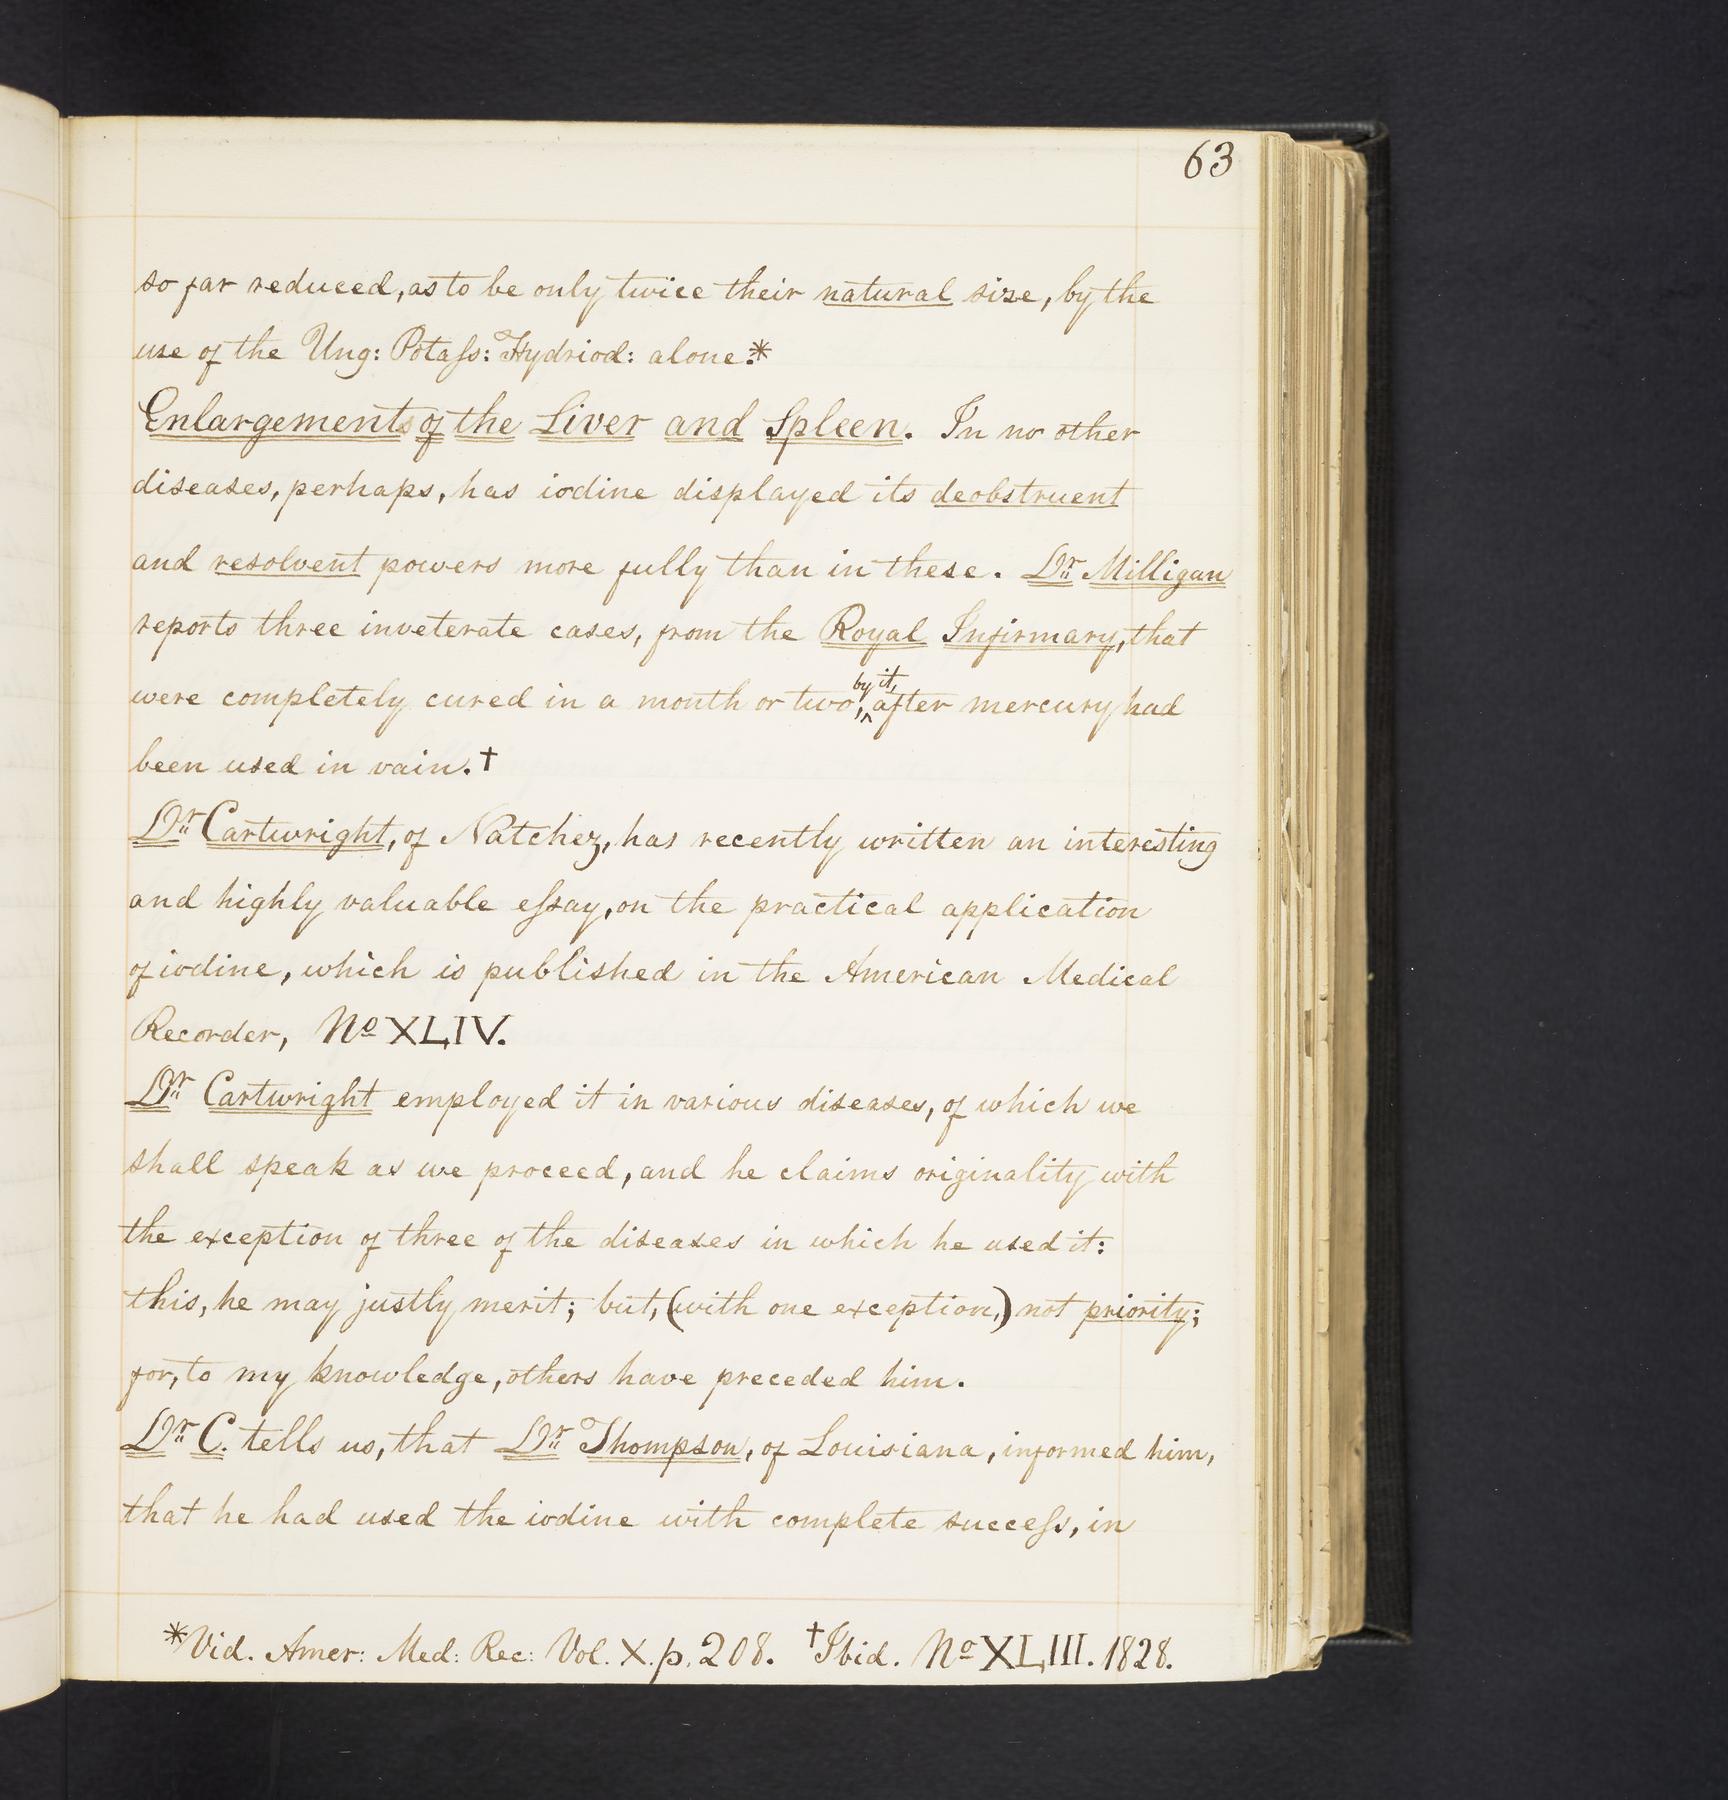 63
so far reduced, as to be only twice their natural size, by the
use of the Ung: Potaſs: Hydriod: alone.*
Enlargements of the Liver and Spleen. In no other
diseases, perhaps, has iodine displayed its deobstruent
and resolvent powers more fully than in these. Dr Milligan
reports three inveterate cases, from the Royal Infirmary, that
by it,
were completely cured in a month or two, ^ after mercury had
been used in vain.†
Dr Cartwright, of Natchez, has recently written an interesting
and highly valuable eſsay, on the practical application
of iodine, which is published in the American Medical
Recorder, No XLIV.
Dr Cartwright employed it in various diseases, of which we
shall speak as we proceed, and he claims originality with
the exception of three of the diseases in which he used it:
this, he may justly merit; but, (with one exception,) not priority;
for, to my knowledge, others have preceded him.
Dr C. tells us, that Dr Thompson, of Louisiana, informed him,
that he had used the iodine with complete succeſs, in
*Vid. Amer: Med: Rec: Vol. X. p. 208. †Ibid. No XLIII. 1828.